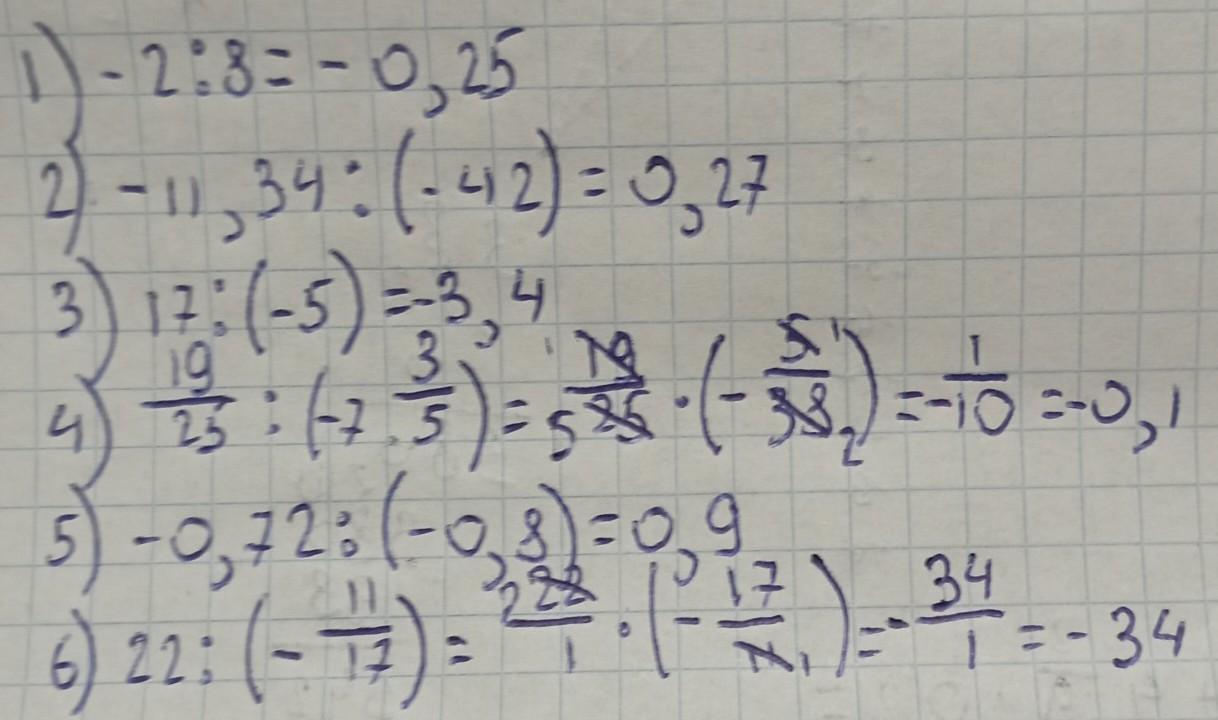 1) -2:8=-0,25
2) -11,34:(-42)=0,27
3) 17:(-5)=-3,4
4) 19/25:(-7 3/5)=19/25·(-5/38)=-1/10=-0,1
5) -0,72:(-0,8)=0,9
6) 22:(-11/17)=22/1·(-17/11)=-34/1=-34